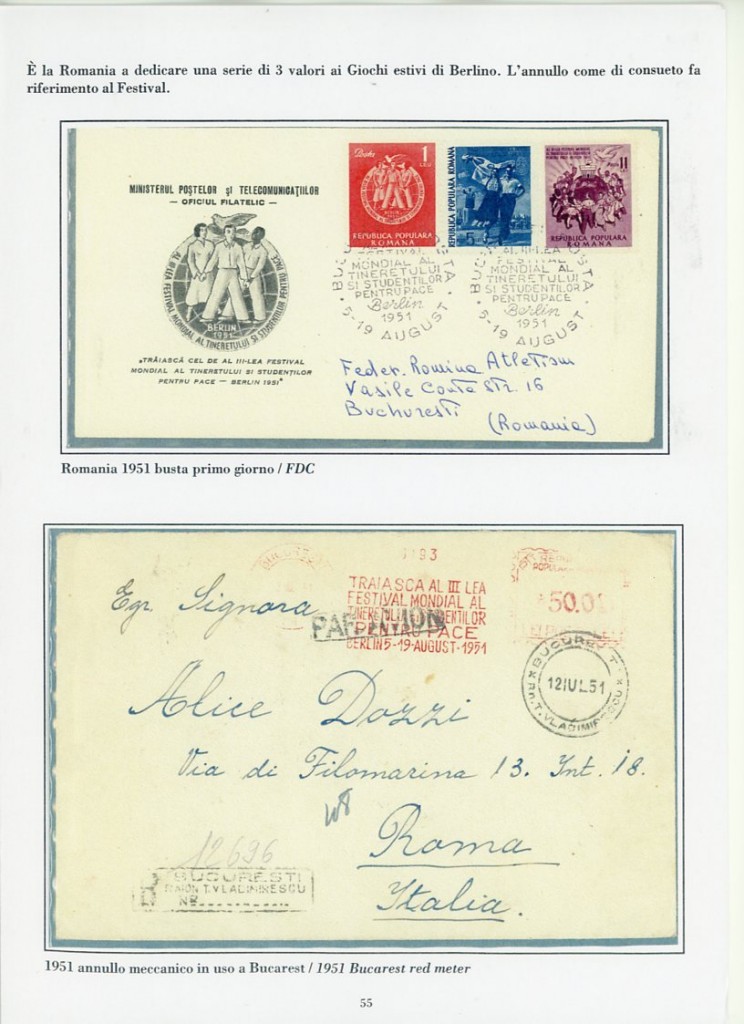 È la Romania a dedicare una serie di 3 valori ai Giochi estivi di Berlino. L'annullo come di consueto fa
riferimento al Festival.
MINISTERUL POȘTELOR și TELECOMUNICAȚIILOR
— OFICIUL FILATELIC —
AL III-LEA FESTIVAL MONDIAL AL TINERETULUI SI STUDENȚILOR PENTRU PACE
BERLIN
1951
„TRĂIASCĂ CEL DE AL III-LEA FESTIVAL
MONDIAL AL TINERETULUI SI STUDENȚILOR
PENTRU PACE — BERLIN 1951"
Posta
1
LEU
REPUBLICA POPULARA
ROMANA
REPUBLICA POPULARA ROMANA
5
11
REPUBLICA POPULARA
ROMANA
MONDIAL AL
TINERETULUI
SI STUDENTILOR
PENTRU PACE
Berlin
1951
5-19 AUGUST
AL III-LEA
FESTIVAL
MONDIAL AL
TINERETULUI
SI STUDENTILOR
PENTRU PACE
Berlin
1951
5-19 AUGUST
Feder. Romina Atletism
Vasile Conta Str. 16
Buchuresti
(Romania)
Romania 1951 busta primo giorno / FDC
TRAIASCA AL III LEA
FESTIVAL MONDIAL AL
TINERETULUI STUDENTILOR
PENTRU PACE
BERLIN 5-19-AUGUST-1951
PAR AVION
50.0
BUCUREȘTI
12 IUL 51
T. VLADIMIRESCU
Egr. Signora
Alice Dozzi
Via di Filomarina 13. Int. 18.
Roma
Italia.
12696
R
BUCURESTI
RAION T. VLADIMIRESCU
NR
1951 annullo meccanico in uso a Bucarest / 1951 Bucarest red meter
55